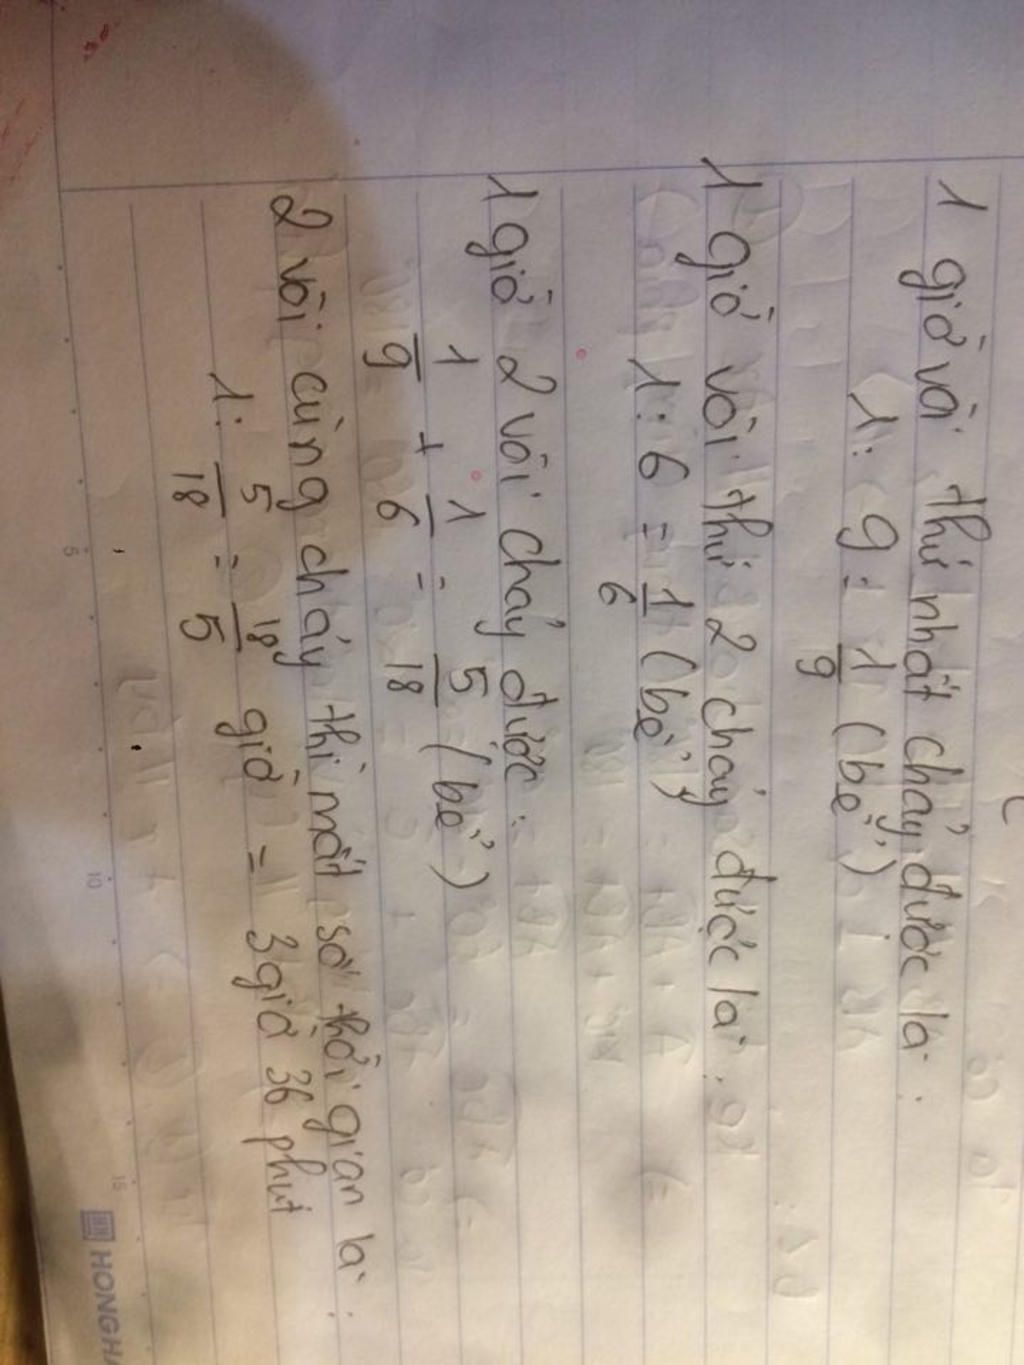 1 giờ vòi thứ nhất chảy được là:
1: 9 = 1/9 (bể)
1 giờ vòi thứ 2 chảy được là:
1: 6 = 1/6 (bể)
1 giờ 2 vòi chảy được:
1/9 + 1/6 = 5/18 (bể)
2 vòi cùng chảy thì mất số thời gian là:
1: 5/18 = 18/5 giờ = 3 giờ 36 phút
5 10 15
HONGH